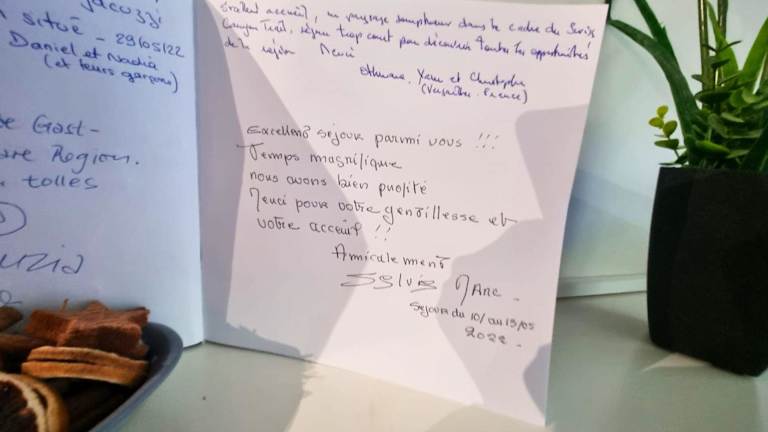 jacuzzi
situé - 29/05/22
Daniel et Nadia
(et leurs garçons)
Gast-
Region.
tolles
accueil, un paysage somptueux dans le cadre du Swiss
Canyon Trail, séjour trop court pour découvrir toutes les opportunités
de la région Merci
Yann et Christophe
(Versailles - France)
Excellent séjour parmi vous !!!
Temps magnifique
nous avons bien profité
Merci pour votre gentillesse et
votre acceuil !!
Amicalement
Sylvie Marc.
Séjour du 10/ au 15/05
2022.